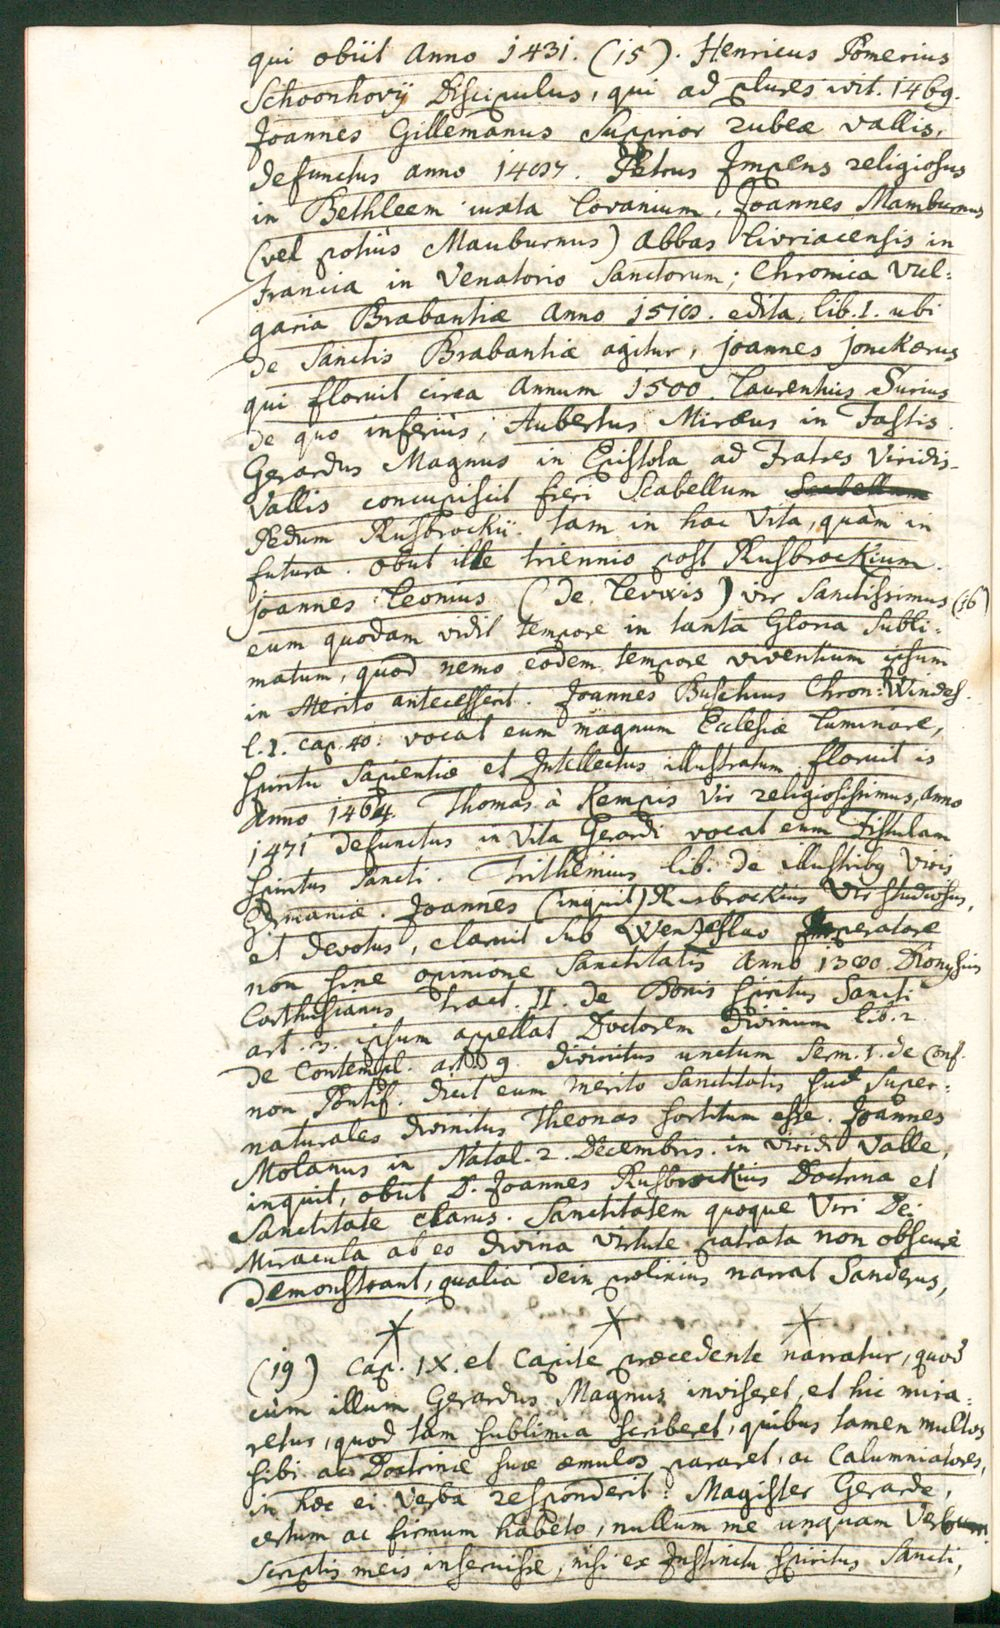 qui obiit Anno 1431. (15). Henricus Pomerius
Schoonhovij Discipulus, qui ad plures ivit. 1469.
Joannes Gillemanus Supprior rubeæ vallis,
defunctus anno 1487. Petrus Impens religiosus
in Bethleem iuxta Lovanium, Joannes Mamburnus
(vel potiùs Mauburnus) Abbas Livriacensis in
Francia in Venatorio Sanctorum; Chronica vul:
garia Brabantiæ Anno 1518. edita, lib. 1. ubi
de Sanctis Brabantiæ agitur, Joannes Jonckerus
qui floruit circa Annum 1500. Laurentius Surius
de quo inferiùs; Aubertus Miræus in Fastis.
Gerardus Magnus in Epistola ad Fratres Viridis-
Vallis concupiscit fieri Scabellum Scabellum
Pedum Rusbrockii. tam in hac Vita, quàm in
futura. obiit ille triennio post Rusbrockium.
Joannes Leonius (de Levvis) vir Sanctissimus (16)
eum quodam vidit tempore in tanta Gloria Subli:
matum, quod nemo eodem tempore viventium ipsum
in Merito antecesserit. Joannes Buschius Chron: Windes.
l. 2. cap. 40. vocat eum magnum Ecclesiæ luminare,
Spiritu Sapientiæ et Intellectus illustratum. floruit is
Anno 1464. Thomas à Kempis Vir religiosissimus, Anno
1471 defunctus in Vita Gerardi vocat eum Fistulam
Spiritus Sancti. Trithemius lib. de illustribq Viris
Germaniæ. Joannes (inquit) Rusbrockius Vir studiosus,
et devotus, claruit sub Wenzeslao Imperatore
non sine opinione Sanctitatis Anno 1380. Dionysius
Carthusianus tract. II. de Donis Spiritus Sancti
art. 3. ipsum appellat Doctorem Divinum lib. 2.
de Contempl. art. 9 divinitus unctum Serm. 1. de Conf.
non Pontif. dicit eum merito Sanctitatis suæ super:
naturales divinitus Theorias sortitum esse. Joannes
Molanus in Natal. 2. Decembris. in viridi Valle,
inquit, obiit D. Joannes Rusbrockius Doctrina et
Sanctitate clarus. Sanctitatem quoque Viri Dei
Miracula ab eo divina virtute patrata non obscurè
demonstrant, qualia dein prolixius narrat Sanderus,
(19) Cap. IX. et Capite præcedente narratur, quod
cùm illum Gerardus Magnus inviseret, et hic mira:
retur, quod tam sublimia scriberet, quibus tamen multos
sibi ac Doctrinæ suæ æmulos pararet, ac Calumniatores,
in hæc ei verba responderit: Magister Gerarde,
certum ac firmum habeto, nullum me unquam Verbum
scriptis meis inseruisse, nisi ex Instinctu Spiritus Sancti,